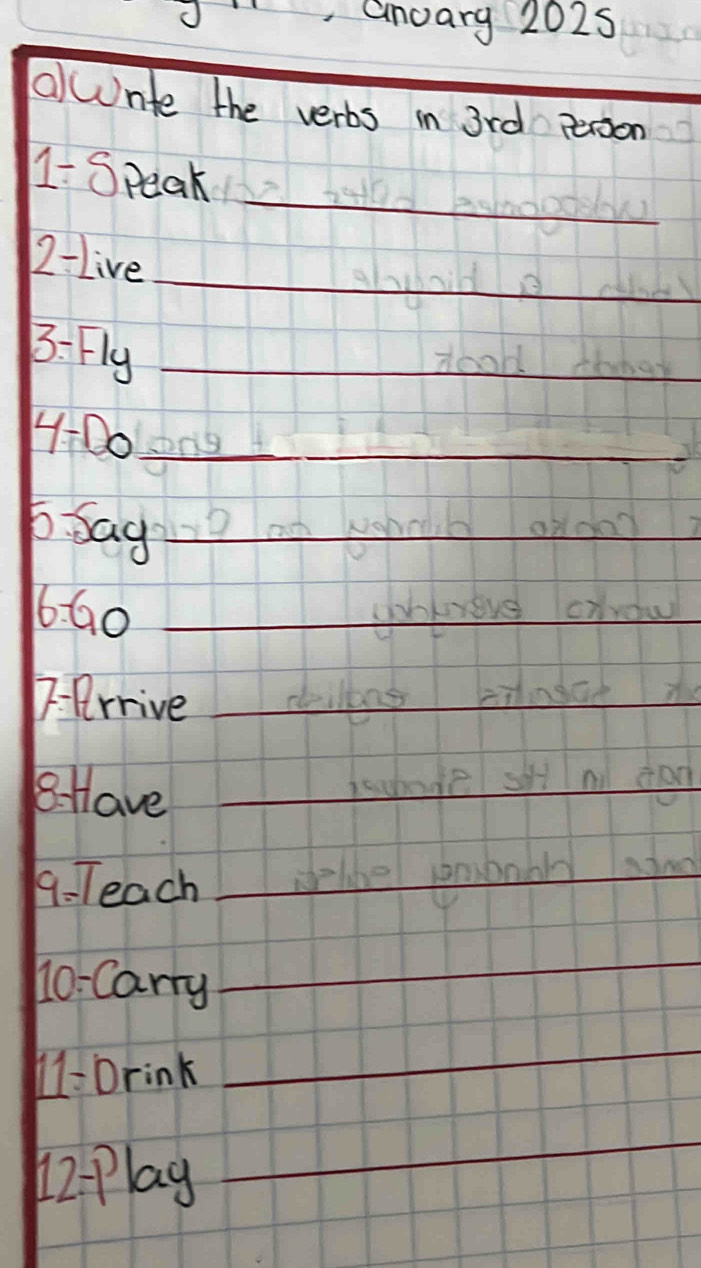 2025
a) Write the verbs in 3rd Person
1- Speak
2- Live
3- Fly
4- Do
5- Say
6- Go
7- Arrive
8- Have
9- Teach
10- Carry
11- Drink
12- Play